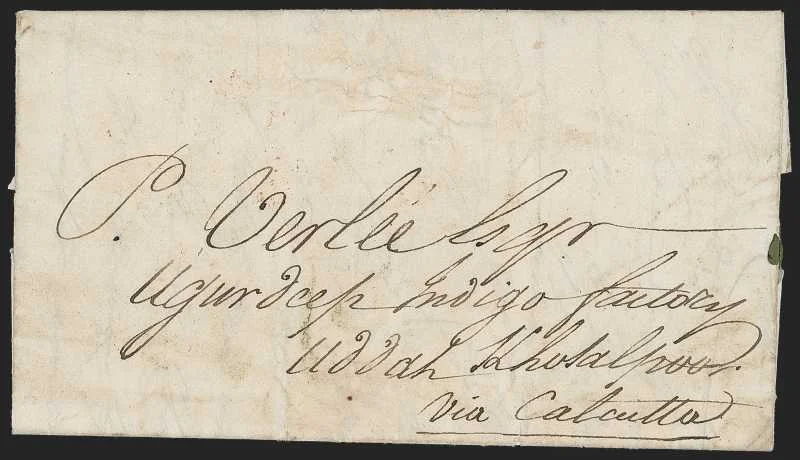 P. Verlée Esqr
Ugurdeep Indigo factory
Uddah Khosalpoor.
via Calcutta